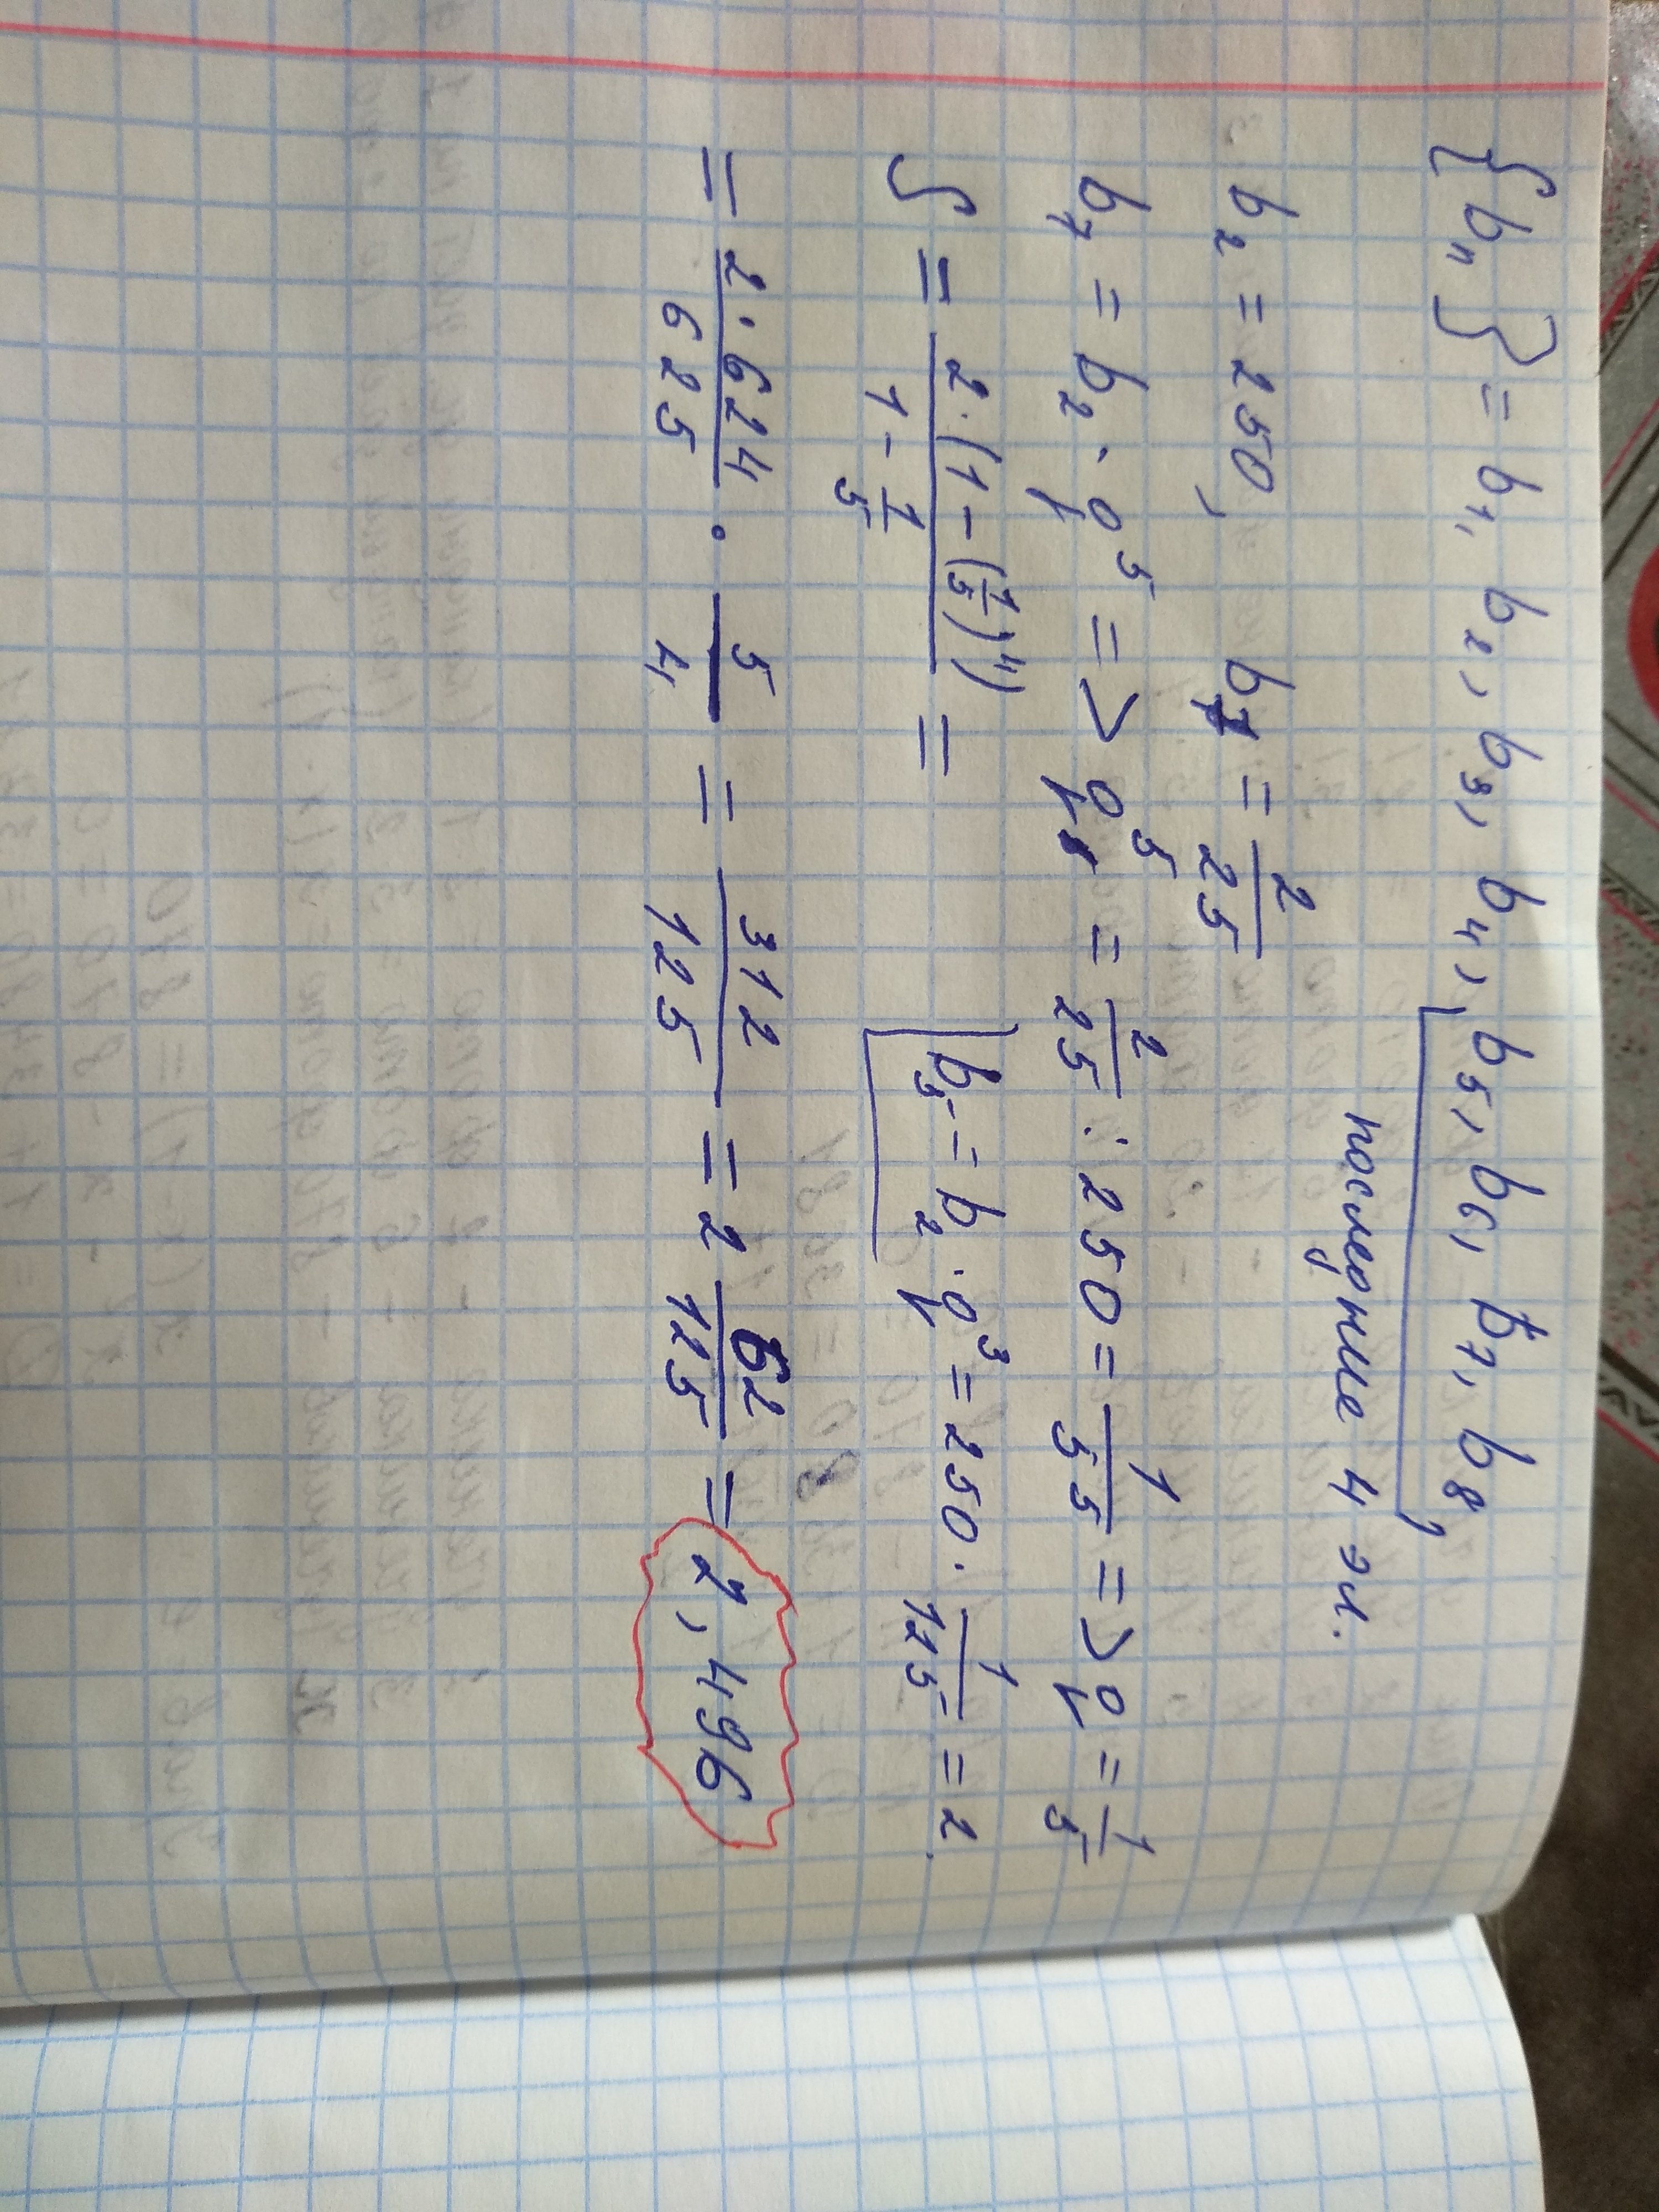 {bₙ} = b₁, b₂, b₃, b₄, b₅, b₆, b₇, b₈,
последние 4 эл.
b₂ = 250, b₇ = 2/25
b₇ = b₂ · q⁵ => q⁵ = 2/25 : 250 = 1/5⁵ => q = 1/5
S = 2·(1 - (1/5)⁴)/(1 - 1/5) = b₅ = b₂ · q³ = 250 · 1/125 = 2.
= 2·624/625 · 5/4 = 312/125 = 2 62/125 = 2,496